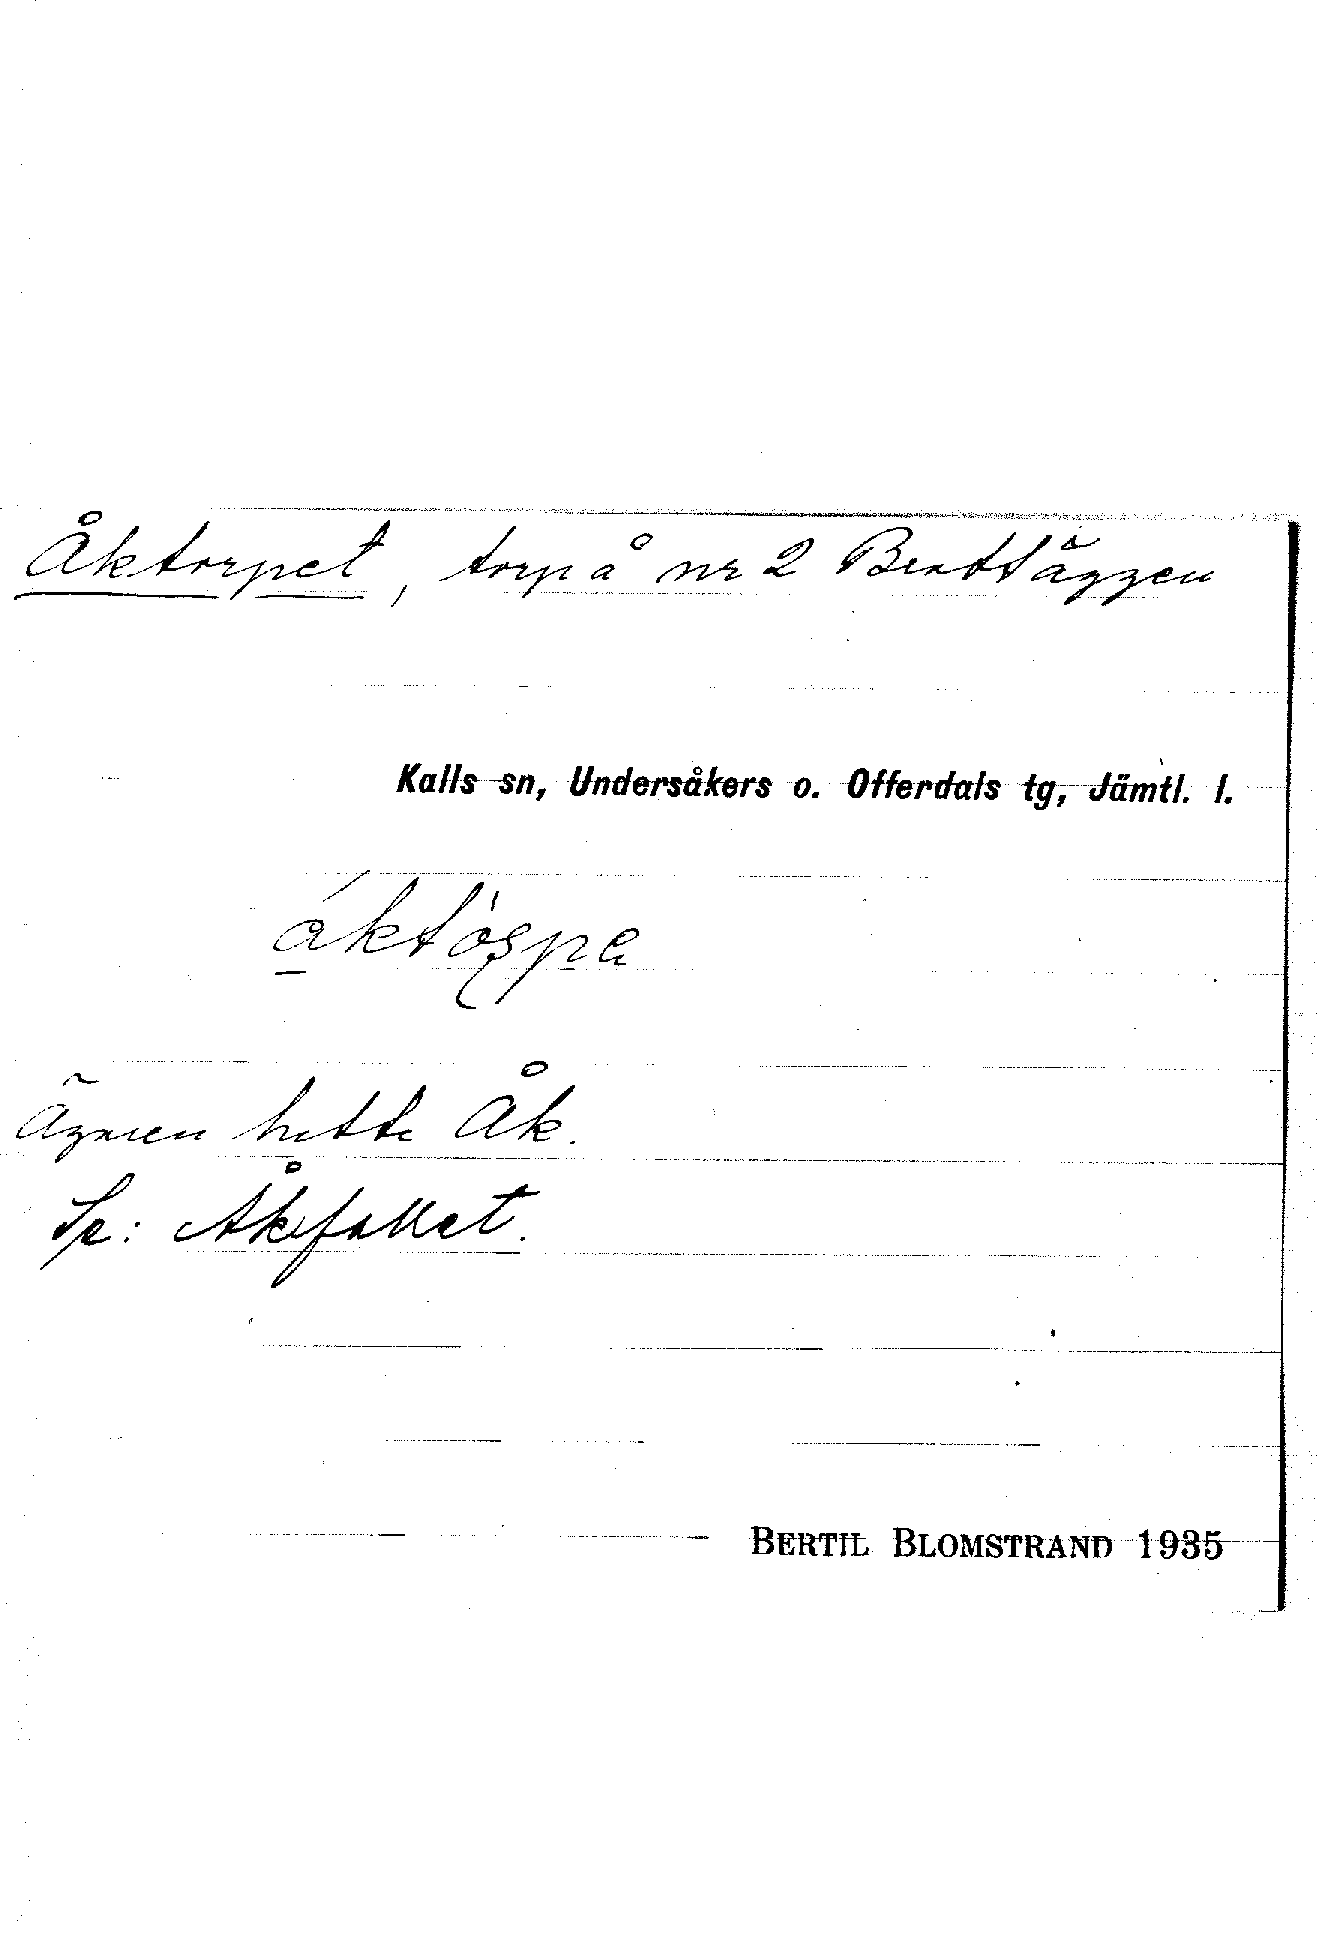 Åktorpet, torp å nr 2 Brattäggen
Kalls sn, Undersåkers o. Offerdals tg, Jämtl. l.
Ägaren hette Åk.
Se: Åkefallet.
BERTIL BLOMSTRAND 1935